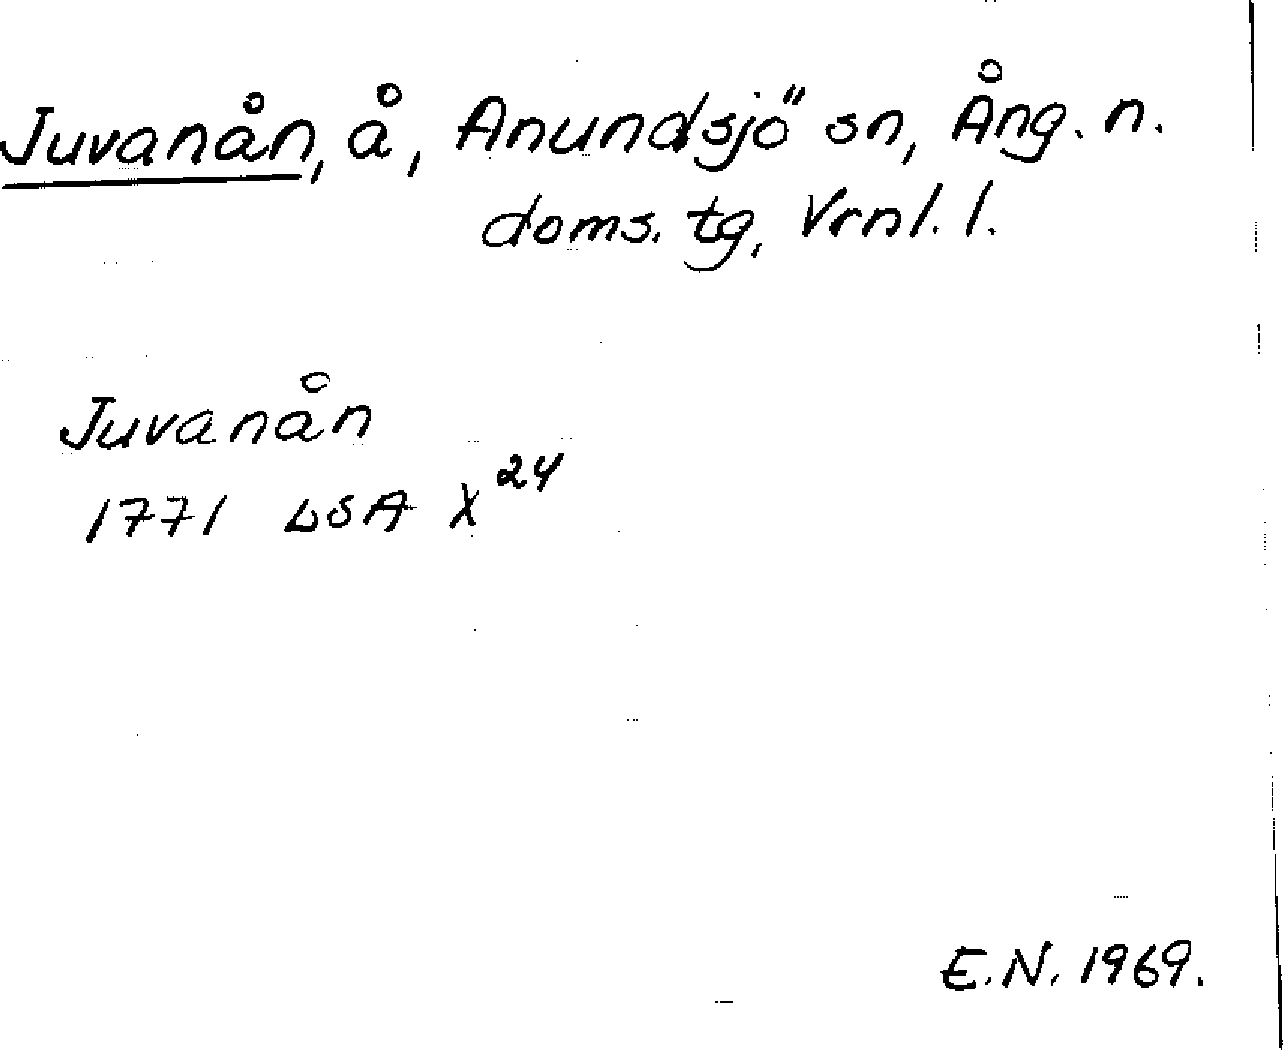 Juvanån, å, Anundsjö sn, Ång. n.
doms. tg, Vrnl. l.
Juvanån
1771 LSA X²⁴
E.N. 1969.